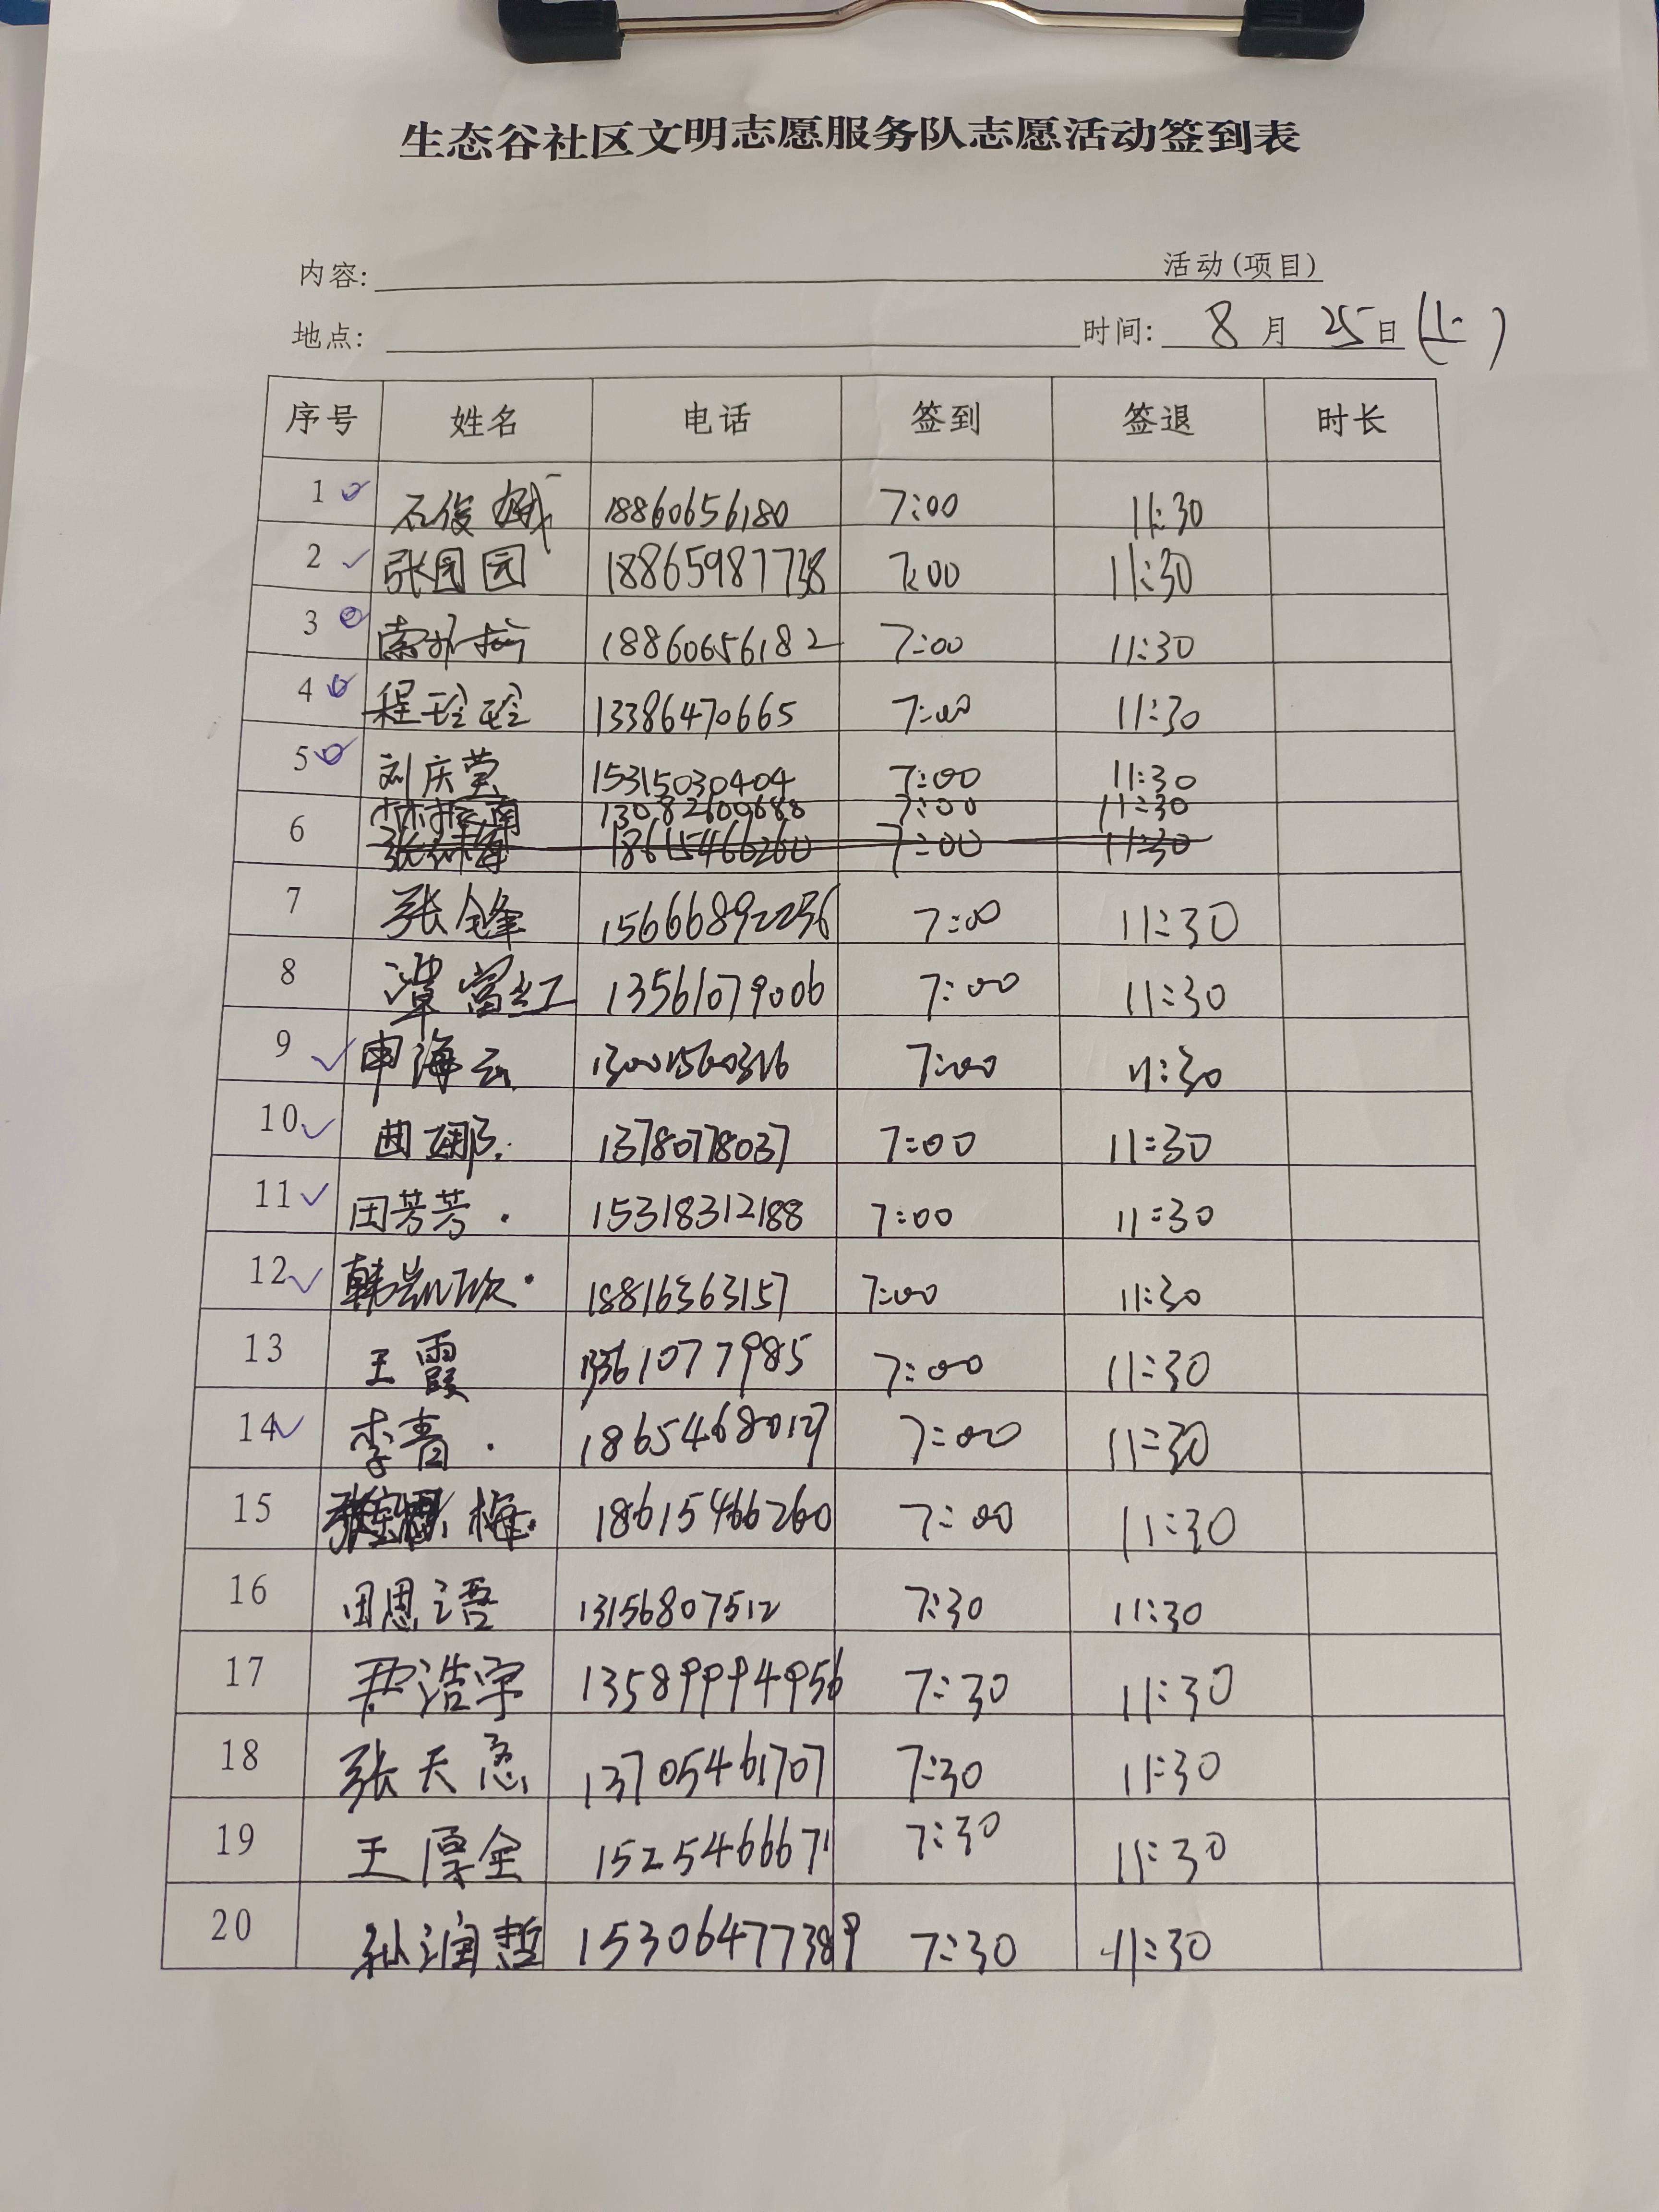 生态谷社区文明志愿服务队志愿活动签到表
内容: 活动(项目)
地点: 时间: 8月25日(上)
序号 姓名 电话 签到 签退 时长
1 石俊娥 18860656180 7:00 11:30
2 张园园 18865987738 7:00 11:30
3 18860656182 7:00 11:30
4 程玲玲 13386470665 7:00 11:30
5 刘庆营 15315030404 7:00 11:30
13082600688 7:00 11:30
6 18615466260 7:00 11:30
7 张锋 15666892256 7:00 11:30
8 13561079006 7:00 11:30
9 申海云 13001560316 7:00 11:30
10 曲娜 13780778037 7:00 11:30
11 田芳芳 15318312188 7:00 11:30
12 韩 18816363157 7:00 11:30
13 王霞 13561077985 7:00 11:30
14 李青 7:00 11:30
15 梅 18615466260 7:00 11:30
16 田恩语 13156807512 7:30 11:30
17 浩宇 13589994956 7:30 11:30
18 张天 13705461707 7:30 11:30
19 王厚全 1525466671 7:30 11:30
20 孙润哲 15306477389 7:30 11:30